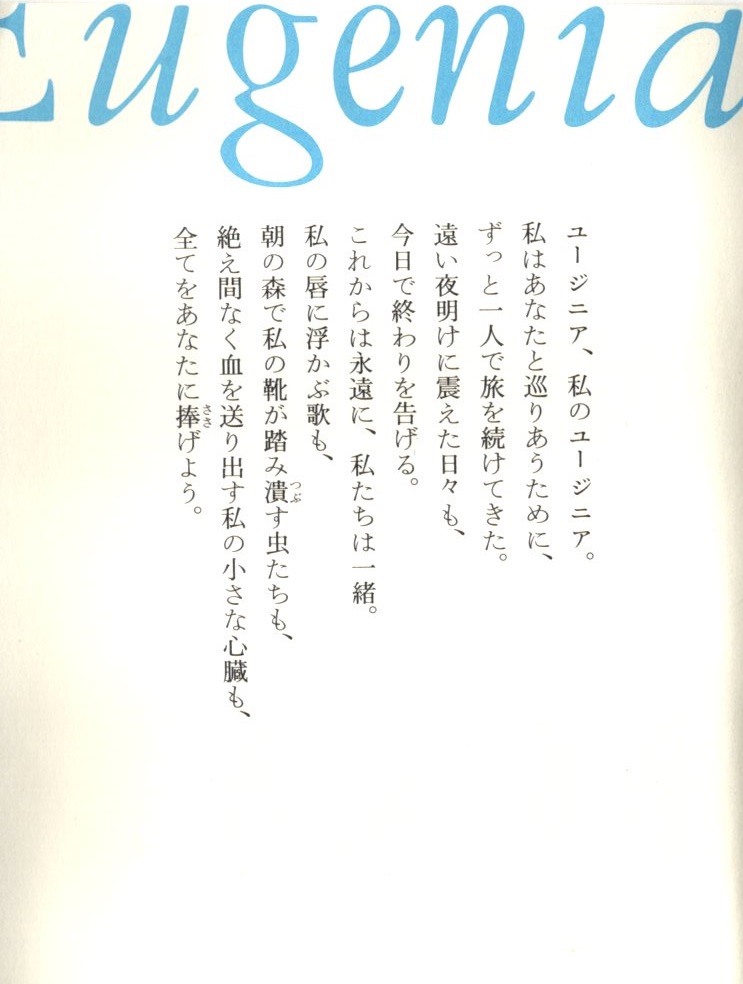 Eugenia
ユージニア、私のユージニア。
私はあなたと巡りあうために、
ずっと一人で旅を続けてきた。
遠い夜明けに震えた日々も、
今日で終わりを告げる。
これからは永遠に、私たちは一緒。
私の唇に浮かぶ歌も、
朝の森で私の靴が踏み潰す虫たちも、
つぶ
絶え間なく血を送り出す私の小さな心臓も、
全てをあなたに捧げよう。
ささ